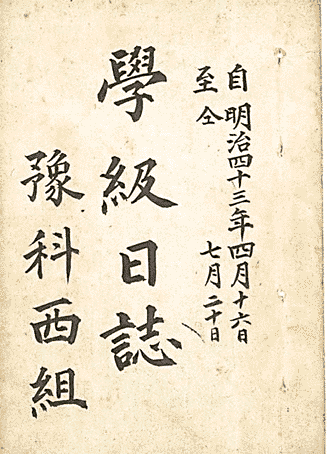 自明治四十三年四月十六日
至仝 七月二十日
學級日誌
豫科西組